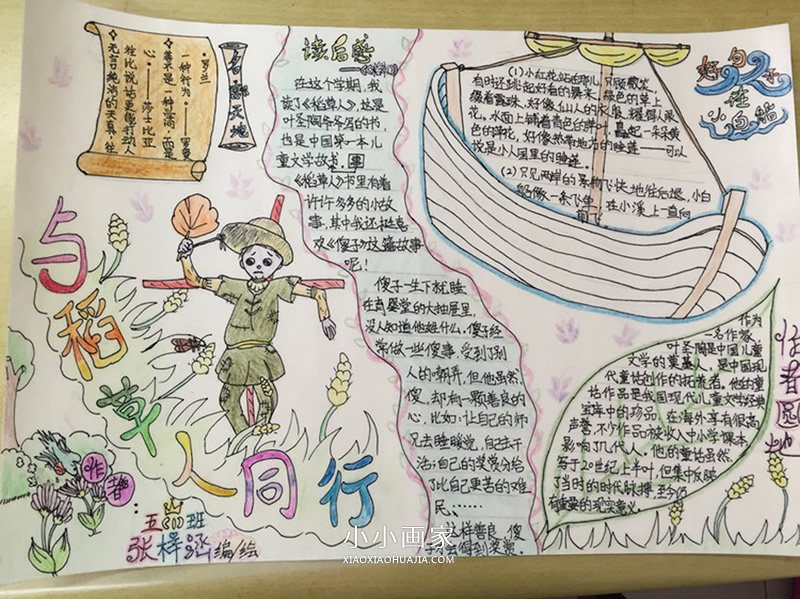 名言天地
·罗兰
一种行为。——罗曼
善不是一种学问，而是
心。——莎士比亚
往比说话更能打动人
无言纯洁的天真，往
与稻草人同行
作者：
五(1)班
张梓涵 编/绘
读后感
在这个学期，我
读了《稻草人》，这是
叶圣陶爷爷写的书，
也是中国第一本儿
童文学故书。
《稻草人》书里有着
许许多多的小故
事，其中我还挺喜
欢《傻子》这篇故事
呢！
傻子一生下就睡
在育婴堂的大抽屉里，
没人知道他姓什么。傻子经
常做一些傻事，受到了别
人的嘲弄。但他虽然
傻，却有一颗善良的
心，比如：让自己的师
兄去睡眠觉，自己去干
活；自己的奖赏分给
了比自己更苦的难
民、……
这样善良，傻
子才会得到奖赏。
好句子在小白船
(1)小红花站在那儿，只顾微笑，
有时还跳起好看的舞来。绿色的草上
缀着露珠，好像仙人的衣服，耀得人眼
花。水面上铺着青色的萍叶，矗起一朵朵黄
色的萍花，好像热带地方的睡莲——可以
说是小人国里的睡莲。
(2)只见两岸的景物飞快地往后退，小白
船像一条飞鱼，在小溪上一直向
前
作者园地
作为
一名作家，
叶圣陶是中国儿童
文学的奠基人，是中国现
代童话创作的拓荒者，他的童
话作品是我国现代儿童文学经典
宝库中的珍品，在海外享有很高
声誉，不少作品被收入中小学课本，
影响了几代人。他的童话虽然
写于20世纪上半叶，但集中反映
了当时的时代脉搏，至今仍
有重要的现实意义。
小小画家
XIAOXIAOHUAJIA.COM